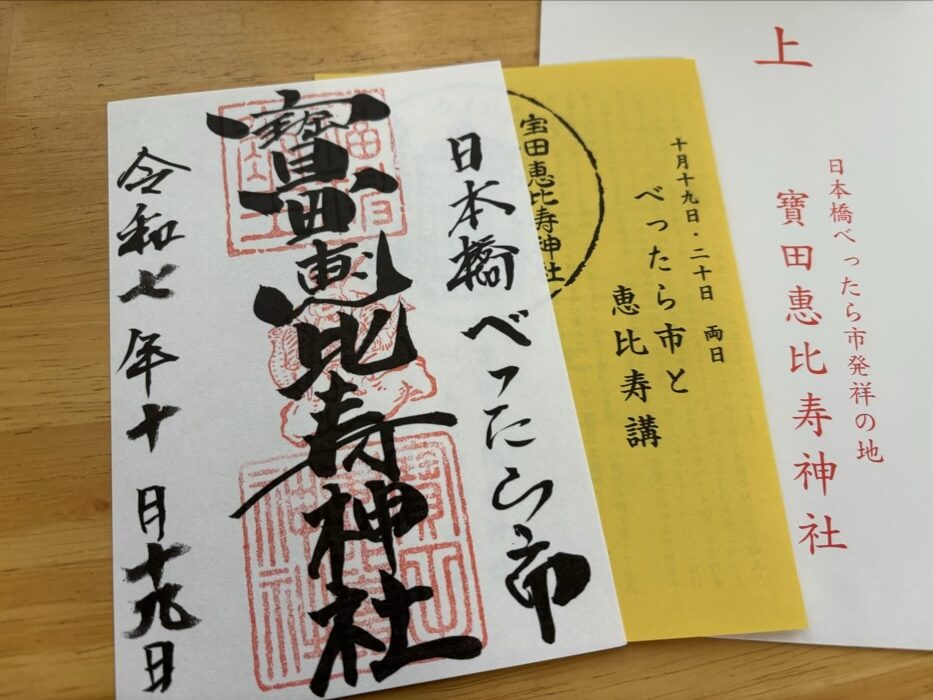 上
日本橋べったら市発祥の地
寶田恵比寿神社
十月十九日・二十日 両日
べったら市と
恵比寿講
宝田恵比寿神社
日本橋べったら市
寳田恵比寿神社
令和七年十月十九日